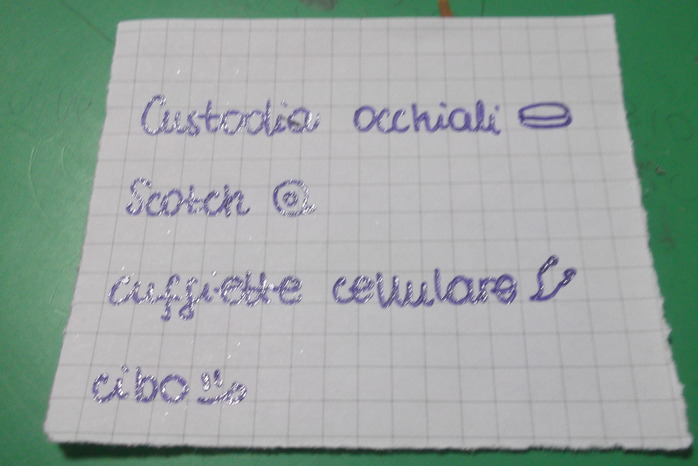 Custodia occhiali
Scotch
cuffiette cellulare
cibo